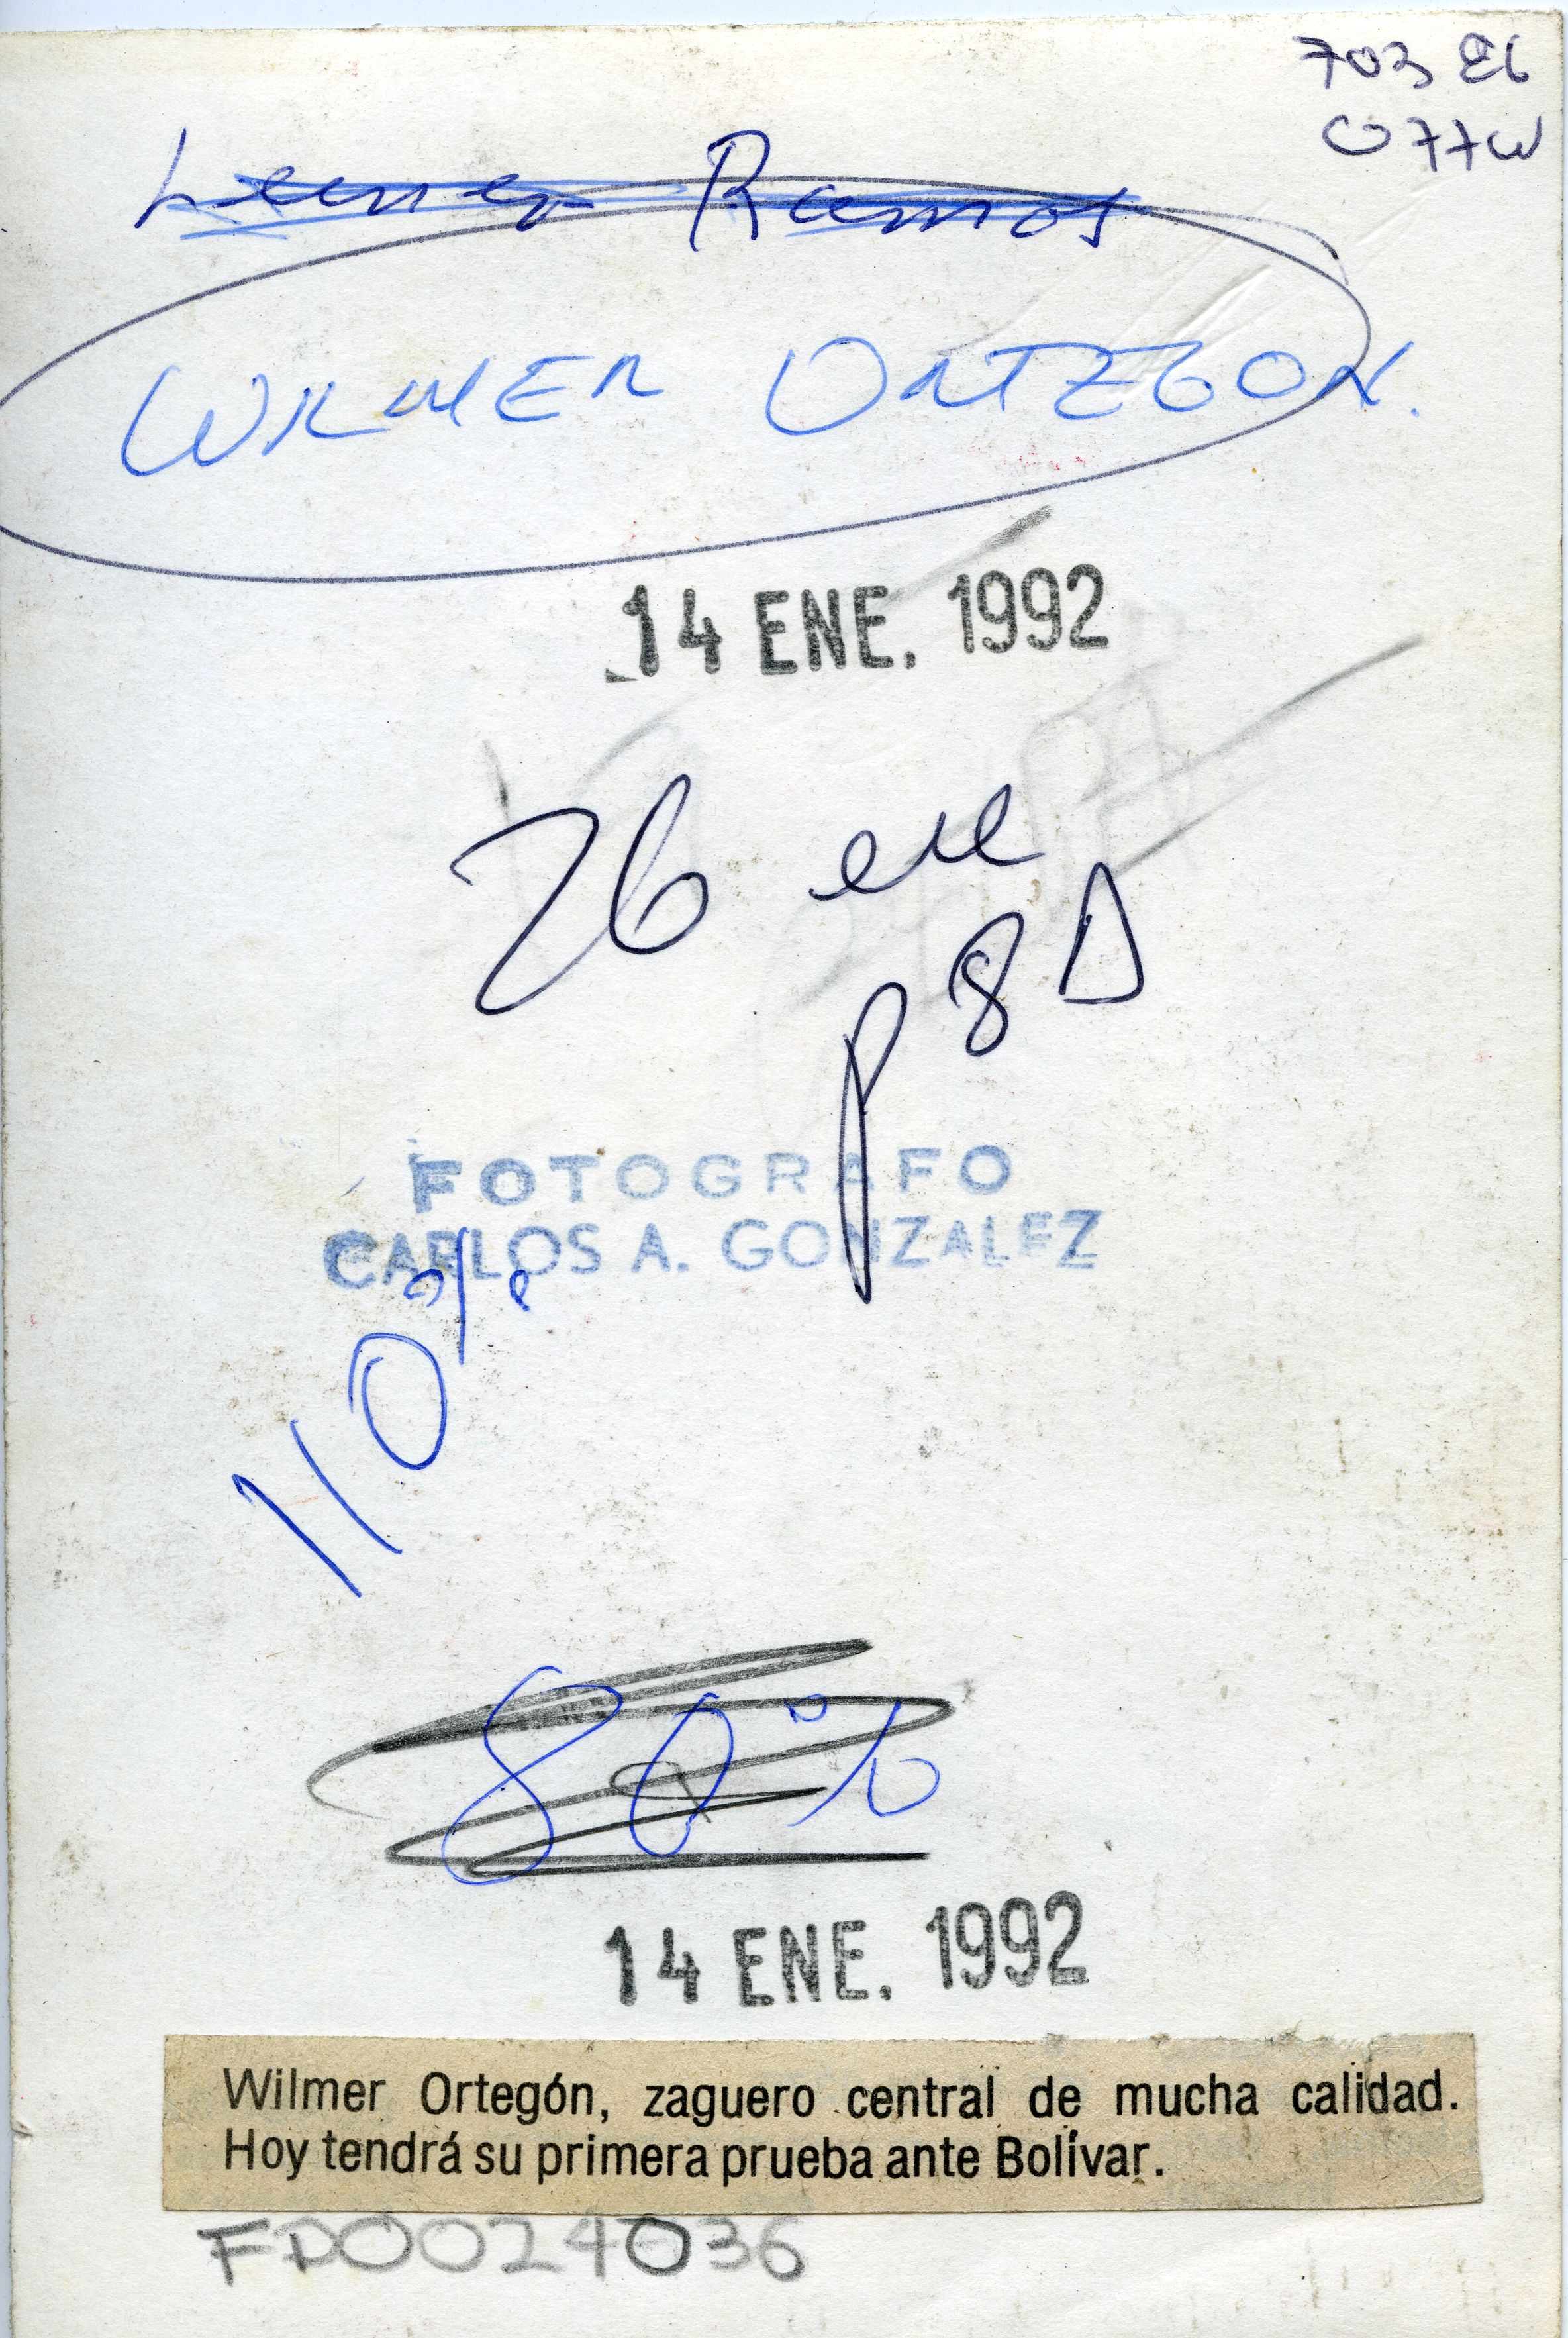 703 86
O77W
Lerner Ramos
WILMER ORTEGON.
14 ENE. 1992
26 ene
P 8 D
FOTOGRAFO
CARLOS A. GONZALEZ
110%
80%
14 ENE. 1992
Wilmer Ortegón, zaguero central de mucha calidad.
Hoy tendrá su primera prueba ante Bolívar.
FD0024036